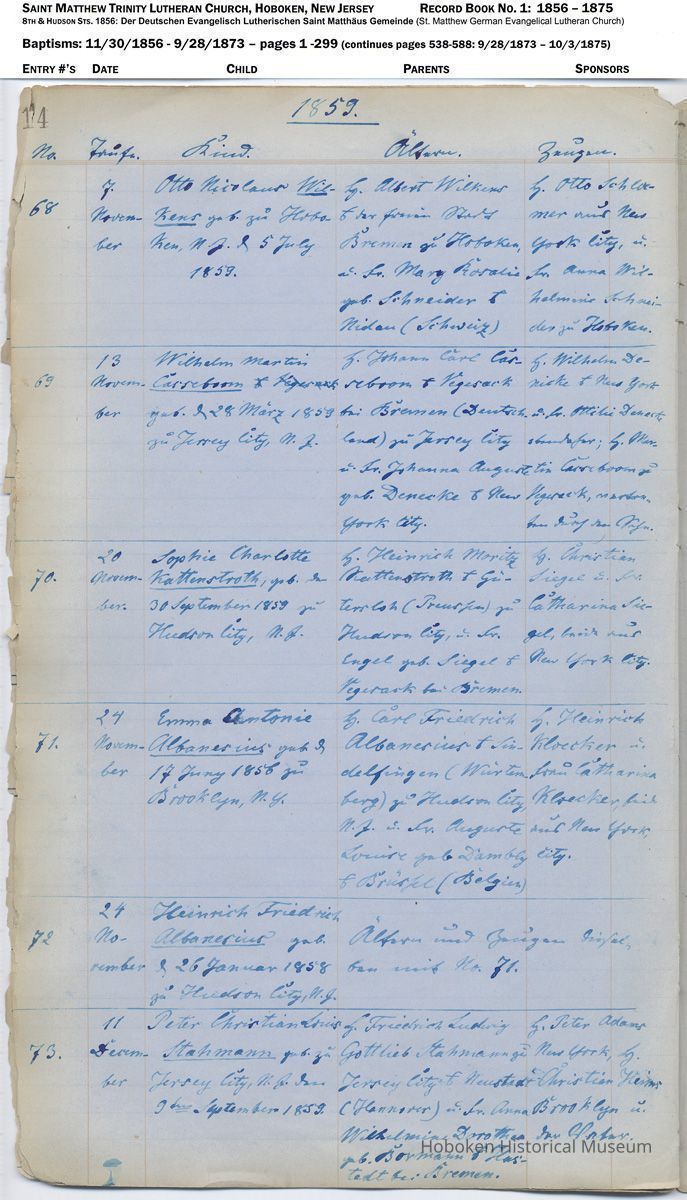 SAINT MATTHEW TRINITY LUTHERAN CHURCH, HOBOKEN, NEW JERSEY RECORD BOOK NO. 1: 1856 – 1875
8TH & HUDSON STS. 1856: Der Deutschen Evangelisch Lutherischen Saint Matthäus Gemeinde (St. Matthew German Evangelical Lutheran Church)
Baptisms: 11/30/1856 - 9/28/1873 – pages 1 -299 (continues pages 538-588: 9/28/1873 – 10/3/1875)
ENTRY #'S DATE CHILD PARENTS SPONSORS
14
1859.
No. Taufe. Kind. Ältern. Zeugen.
68
7. Novem-
ber
Otto Nicolaus Wil-
kens geb. zu Hobo-
ken, N. J. d 5 July
1859.
H. Albert Wilkens
der freien Stadt
Bremen zu Hoboken,
u. Fr. Mary Rosalie
geb. Schneider
Nidau (Schweiz)
H. Otto Schloe-
mer aus New
York City, u.
Fr. Anna Wil-
helmine Schnei-
der zu Hoboken.
69
13
Novem-
ber
Wilhelm Martin
Casseboom
geb. d 28 März 1859
zu Jersey City, N. J.
H. Johann Carl Cas-
seboom Vegesack
bei Bremen (Deutsch-
land) zu Jersey City
u. Fr. Johanna Auguste
geb. Denecke New
York City.
H. Wilhelm De-
York
u. Fr. Denecke
ebendaher; H. Mar-
tin Casseboom zu
Vegesack, vertre-
ten durch den
70.
20
Novem-
ber.
Sophie Charlotte
Kattenstroth, geb. den
30 September 1859 zu
Hudson City, N. J.
H. Heinrich Moritz
Kattenstroth Gü-
tersloh (Preussen) zu
Hudson City, u. Fr.
Engel geb. Siegel
Vegesack bei Bremen.
H. Christian
Siegel u. Fr.
Catharina Sie-
gel, beide aus
New York City.
71.
24
Novem-
ber
Emma Antonie
Albanesius geb. d
17 Juny 1856 zu
Brooklyn, N. Y.
H. Carl Friedrich
Albanesius Sin-
delfingen (Würtem-
berg) zu Hudson City
N. J. u. Fr. Auguste
Louise geb. Dambly
Brüssel (Belgien)
H. Heinrich
Kloecker u.
Frau Catharina
Kloecker, beide
aus New York
City.
72
24
No-
vember
Heinrich Friedrich
Albanesius geb.
d 26 Januar 1858
zu Hudson City, N. J.
Ältern und Zeugen diesel-
ben mit No. 71.
73.
11
Decem-
ber
Peter Christian Louis
Stahmann geb. zu
Jersey City, N. J. den
9ten September 1859.
H. Friedrich Ludwig
Gottlieb Stahmann zu
Jersey City Neustadt
(Hannover) u. Fr. Anna
Wilhelmine Dorothea
geb. Bormann Has-
tedt bei Bremen.
H. Peter Adams
New York, H.
Christian Heins
Brooklyn u.
der Vater.
Hoboken Historical Museum